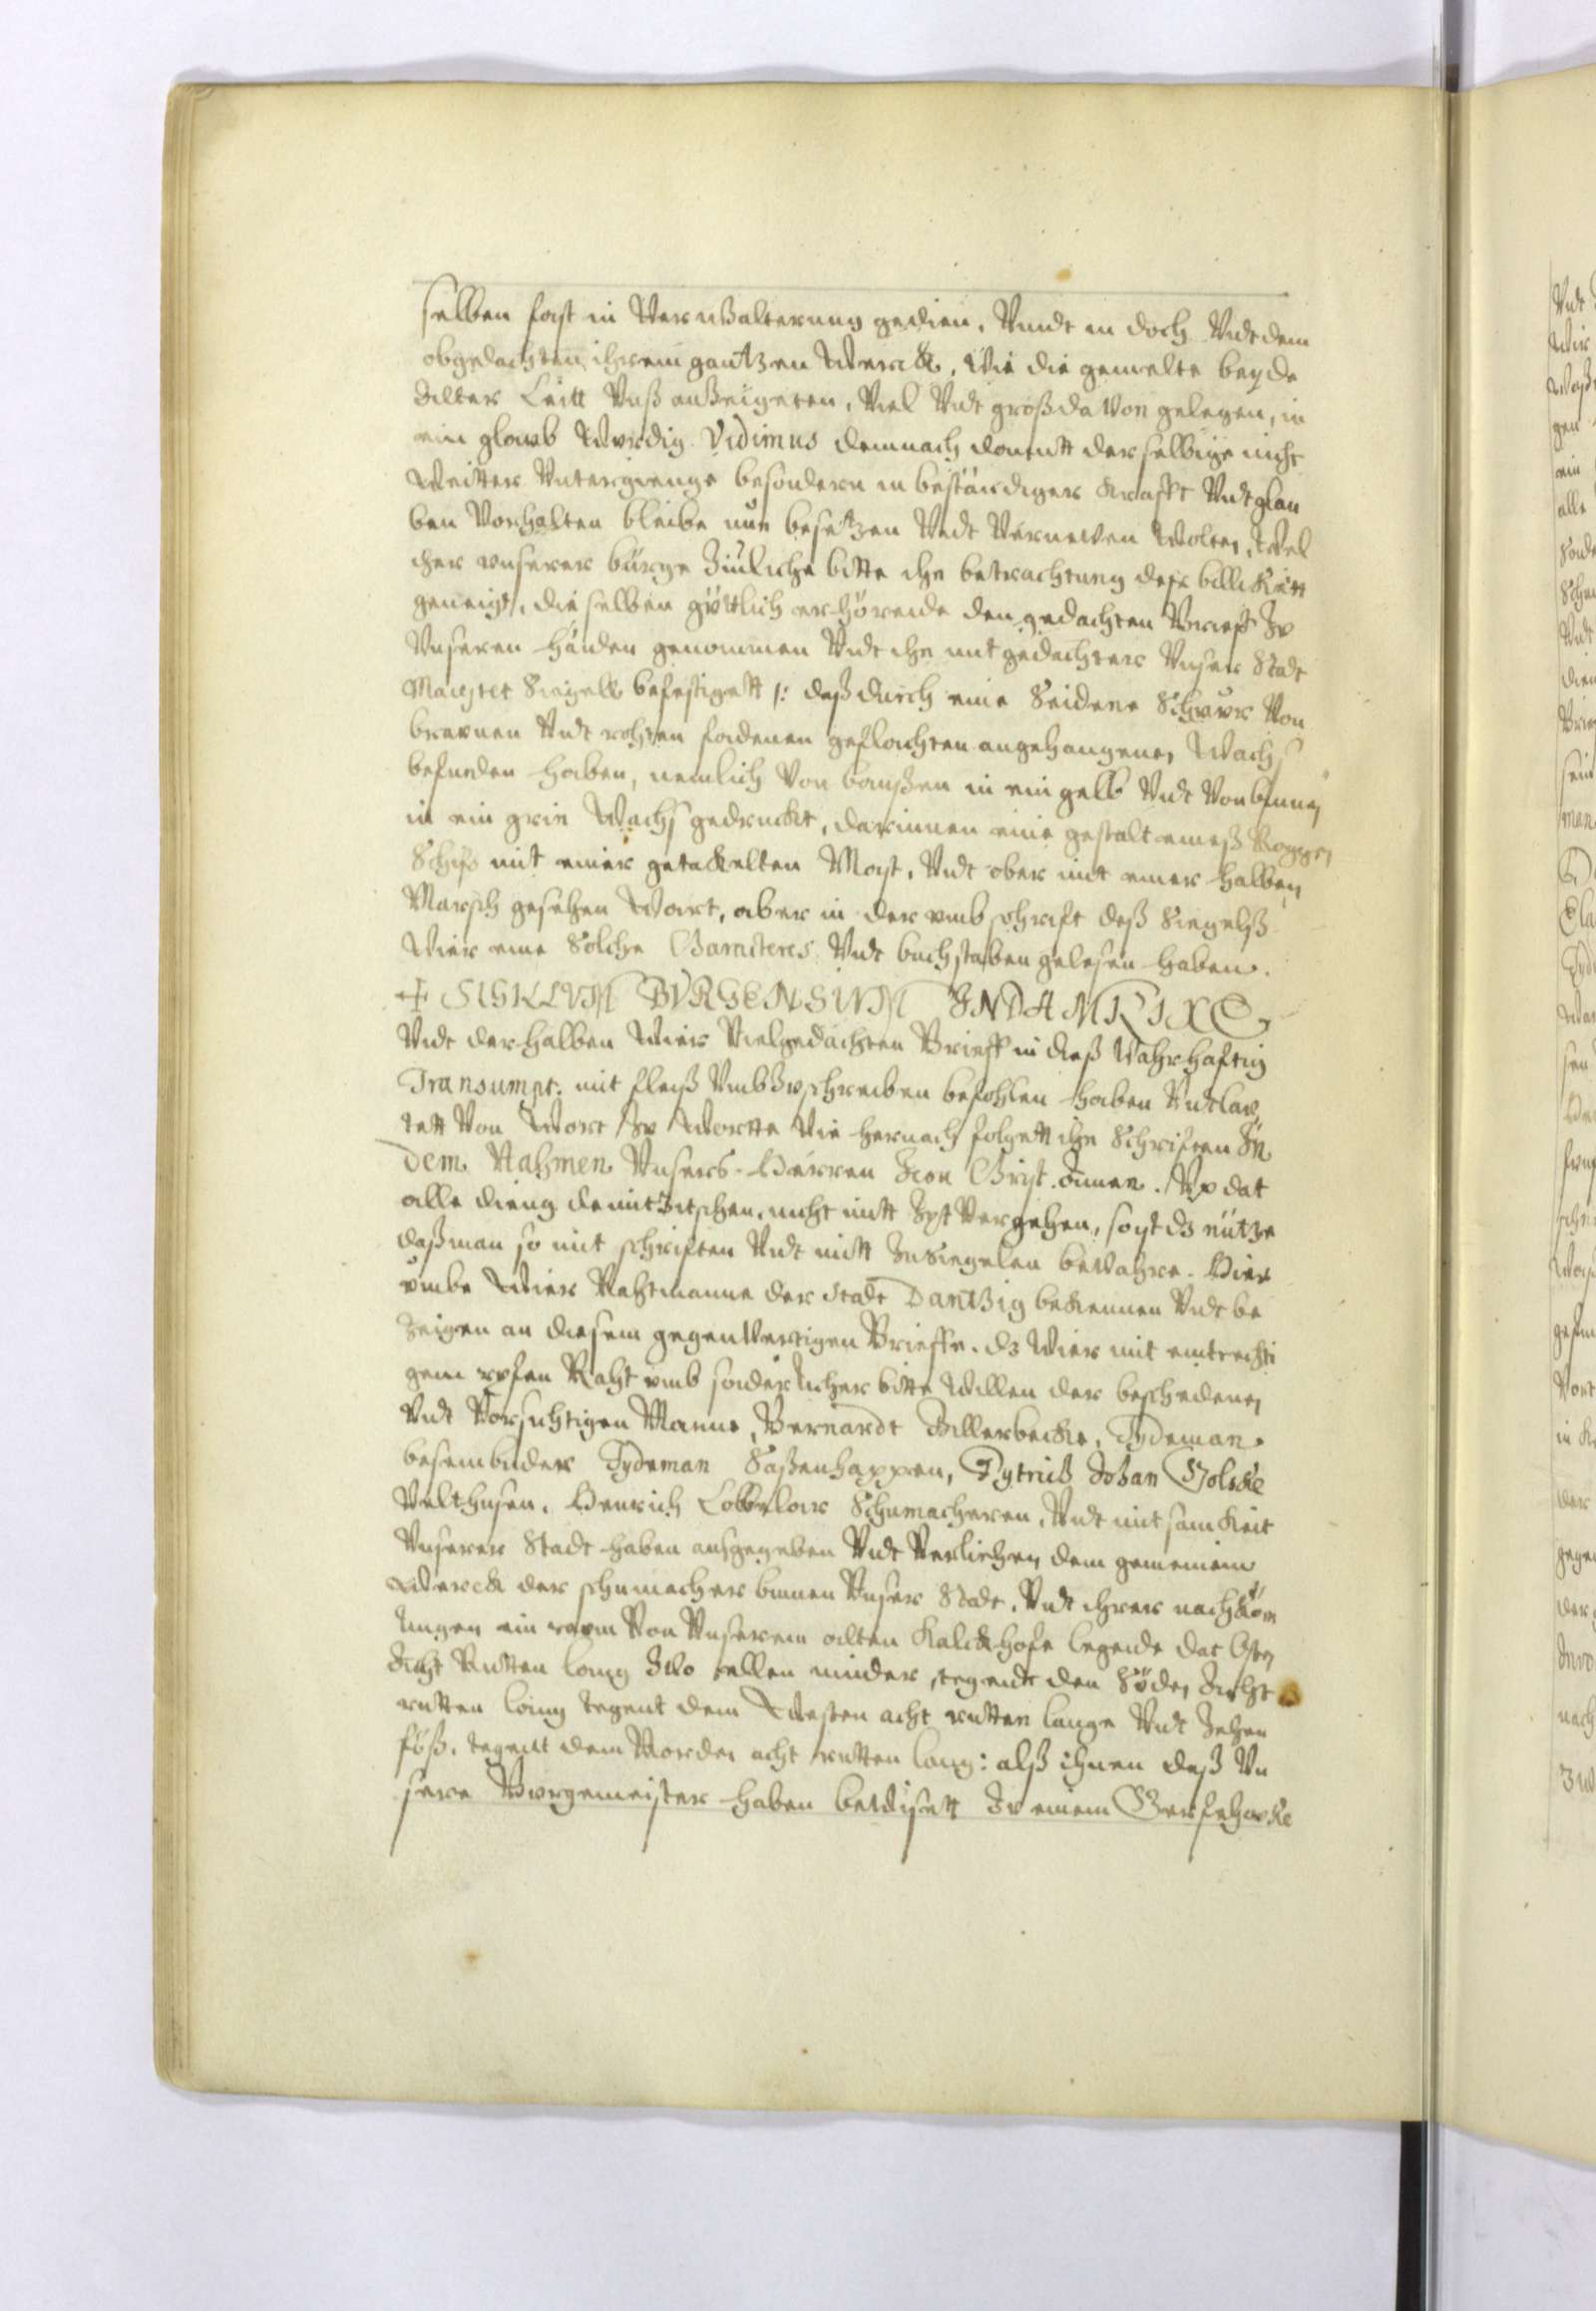 selben fast in Vernwalterung gedien, Vnndt in doch Vndt dem
obgedachten ihrem gantzen Werck, Wie die gemelte beyde
Alter Leitt Vnß anzeigeten, Viel Vndt groß daVon gelegen, in
ein glaub Wurdig Vidimus demnach damitt derselbige nicht
Weitter Vntergienge besondern in beständiger Krafft Vndt glau
ben Vorhalten bleibe nun besetzen Vndt Vernewen Wolten, Wel
cher vnserer bürge Zimliche bitte ihn betrachtung der billickeitt
geneigt, die selben gütlich erhörende den gedachten Brieff Zu
Vnseren händen genommen Vndt ihn mit gedachter Vnser Stadt
Maiestet Siegell befestigett /: daß durch eine Seidene Schnur Von
braunen Vndt rohten fadenen geflochten angehangenes Wachs
befunden haben, nemlich Von baußen in ein gelb Vndt Von binnen
in ein grin Wachs gedruckt, darinnen eine gestalt eineß Koggen
Schifs mit einer getackelten Mast, Vndt ober mit einer halben
Marsch gesehen Wart, aber in der vmbschrift deß Siegelß
Wier eine Solche Caracteres Vndt buchstaben gelesen haben.
+ SIGILLVM BVRGENSIVM IN DAMRIXE
Vndt derhalben Wier Vielgedachten Brieff in dieß Wahrhaftig
Transumpt: mit fleiß Vmbzuschreiben befohlen haben Vndt lau
tett Von Wort Zu Wortte Wie hernach folgett ihn Schriften In
dem Nahmen Vnsers Herren Christ. amen. Vp dat
alle dieng de mit Zitschen, nicht mitt Zyt Vergehen, so ist dz nütze
daß man so mit schriften Vndt mitt InSiegelen beWahre. Hier
vmbe Wier Rahtmanne der Stadt Dantzig bekennen Vndt be
Zeigen an diesem gegenWertigen Brieffe, dz Wier mit eintrechti
gem ryfen Raht vmb sonderlicher bitte Willen der bescheidenen
Vndt Vorsichtigen Manne, Bernardt Billerbecke, Tydeman
besembinder Tydeman Saßenhappen, Dytrich Johan Golske
Velthusen, Henrich Schumacheren, Vndt mit samkeit
Vnserer Stadt haben ausgegeben Vndt Verliehen dem gemeinem
Werck der schumacher binnen Vnser Stadt, Vndt ihrer nachköm
lingen ein rum Von Vnserem alten Kalckhofe legende dat Osten
Acht Rutten lang Zwo ellen minder, tegent den Süden Acht
rutten lang tegent dem Westen acht rutten lange Vndt Zehen
föß, tegent dem Norden acht rutten lang: alß ihnen daß Vn
sere Burgemeister haben beWisett Zu einem Gerfehoke